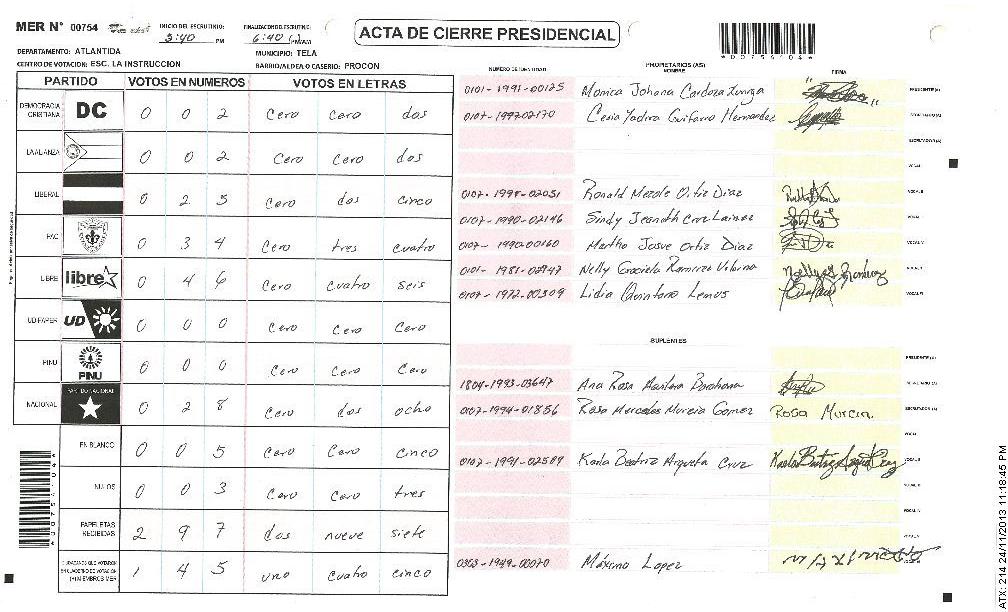 MER N° 00754
INICIO DEL ESCRUTINIO: 3:40 PM
FINALIZACION ESCRUTINIO: 6:40 PM/AM
ACTA DE CIERRE PRESIDENCIAL
DEPARTAMENTO: ATLANTIDA
MUNICIPIO: TELA
CENTRO DE VOTACION: ESC. LA INSTRUCCION
BARRIO/ALDEA O CASERIO: PROCON
PARTIDO VOTOS EN NUMEROS VOTOS EN LETRAS
DEMOCRACIA CRISTIANA DC 0 0 2 Cero Cero dos
LA ALIANZA 0 0 2 Cero Cero dos
LIBERAL 0 2 5 Cero dos cinco
PAC 0 3 4 Cero tres cuatro
LIBRE libre 0 4 6 Cero cuatro seis
UD FAPER UD 0 0 0 Cero Cero Cero
PINU PINU 0 0 0 Cero Cero Cero
NACIONAL PARTIDO NACIONAL 0 2 8 Cero dos ocho
EN BLANCO 0 0 5 Cero Cero cinco
NULOS 0 0 3 Cero Cero tres
PAPELETAS RECIBIDAS 2 9 7 dos nueve siete
CIUDADANOS QUE VOTARON EN CUADERNO DE VOTACION (+) MIEMBROS MER 1 4 5 uno cuatro cinco
NUMERO DE IDENTIDAD PROPIETARIOS (AS) NOMBRE FIRMA
0101-1991-00125 Monica Johana Cardoza Zuniga PRESIDENTE (A)
0107-199702170 Cesia Yadira Guifarro Hernandez SECRETARIO (A)
ESCRUTADOR (A)
VOCAL I
0107-1998-02051 Ronald Ortiz Diaz VOCAL II
0107-1990-02146 Sindy Jeaneth Cruz Lainez
0107-1990-00160 Martha Josue Ortiz Diaz
0101-1981-02947 Nelly Graciela Ramirez
0107-1972-00309 Lidia Quintano Lemus
SUPLENTES
PRESIDENTE (A)
1804-1993-03647 Ana Rosa Barahona SECRETARIO (A)
0107-1994-01856 Rosa Mercedes Murcia Gomez Rosa Murcia. ESCRUTADOR (A)
0107-1991-02589 Karla Beatriz Argueta Cruz
1949-00070 Máximo Lopez
ATX: 214 24/11/2013 11:18:45 PM